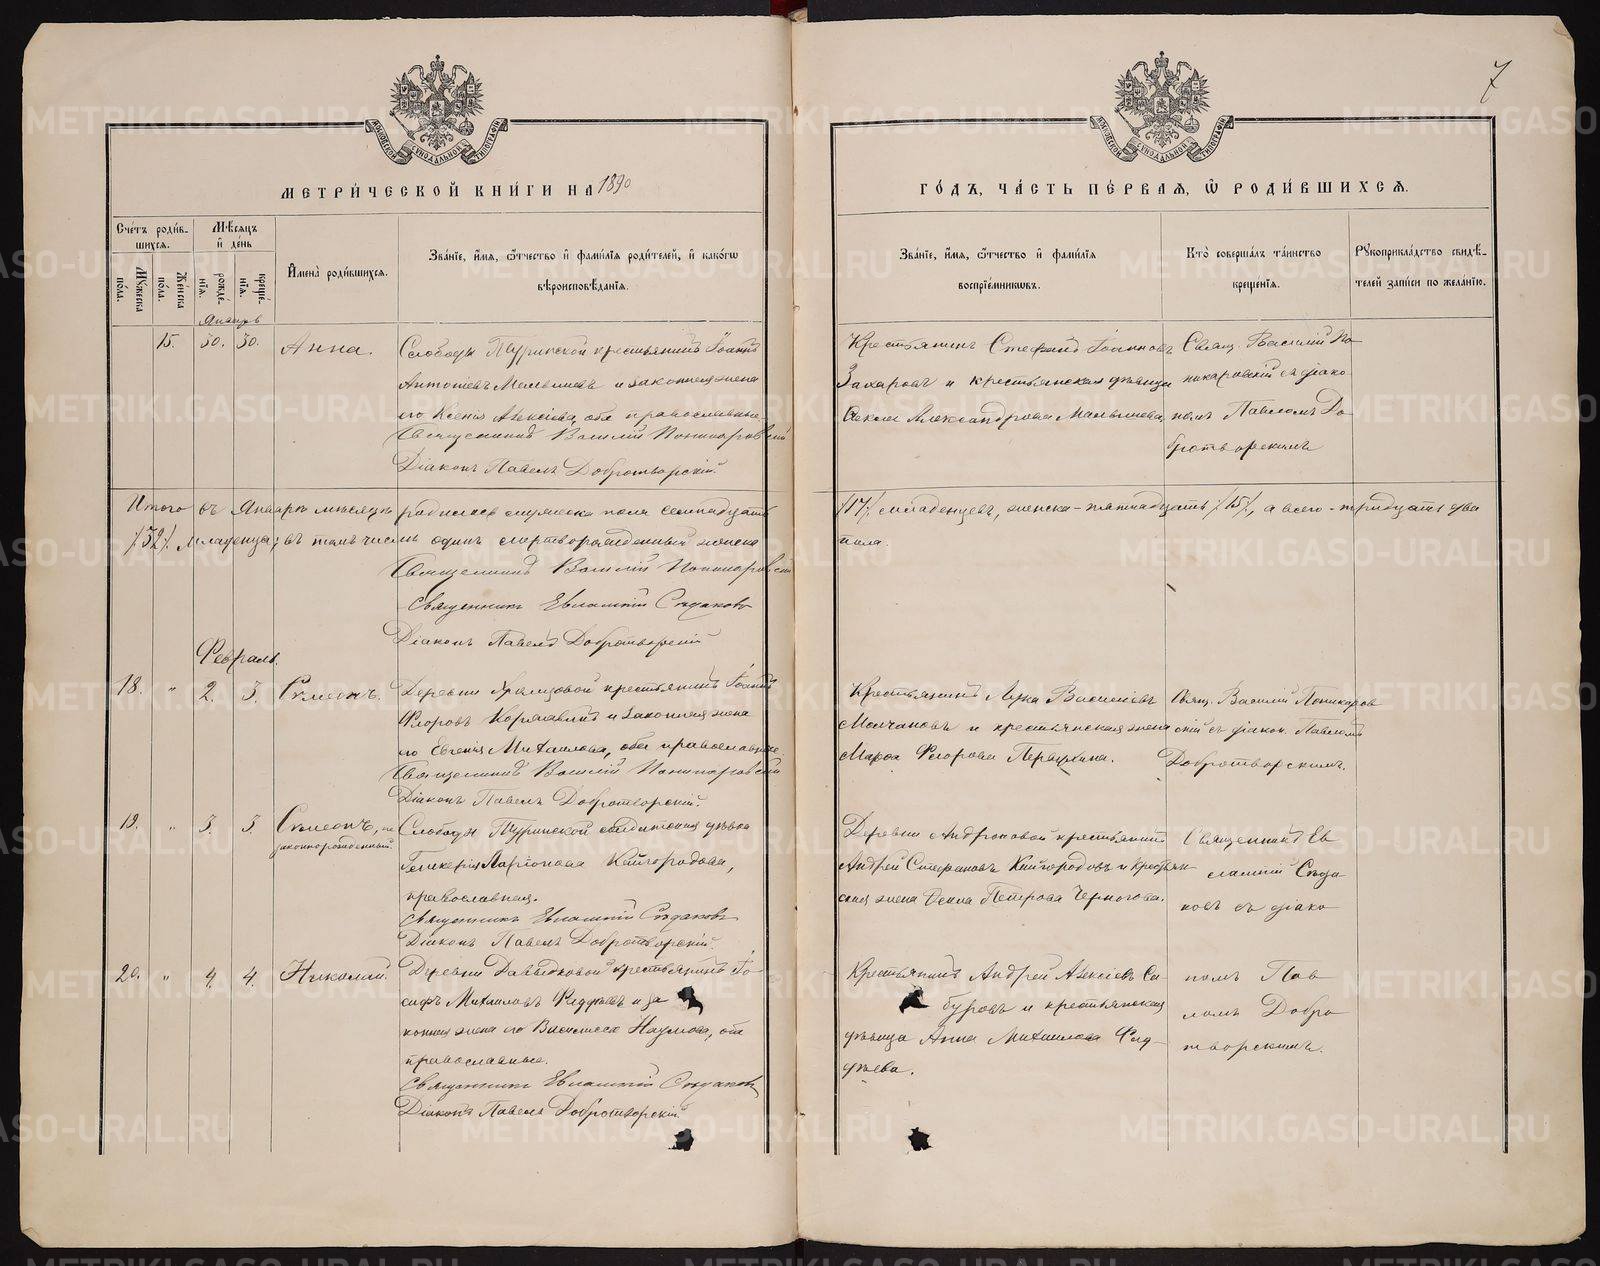 7
МЕТРИЧЕСКОЙ КНИГИ НА 1890
ГОДЪ, ЧАСТЬ ПЕРВАЯ, Ѿ РОДИВШИХСЯ.
Счетъ родившихся.
Мужеска пола.
Женска пола.
Мѣсяцъ и день
рожденія.
крещенія.
Имена родившихся.
Званіе, имя, отчество и фамилія родителей, и какого
вѣроисповѣданія.
Званіе, имя, отчество и фамилія
воспріемниковъ.
Кто совершалъ таинство
крещенія.
Рукоприкладство свидѣ-
телей записи по желанію.
Январь
15. 30. 30. Анна.
Слободы Туринской крестьянинъ Іоаннъ
Антоніевъ и законная жена
его Ксенія Алексіева, оба православные.
Священникъ Василій Понинаровскій
Діаконъ Павелъ Добротворскій.
Крестьянинъ Стефанъ Іоанновъ
Захаровъ и крестьянская дѣвица
Александрова
Свящ. Василій По
нинаровскій съ діако
номъ Павломъ До
бротворскимъ
Итого въ Январѣ мѣсяцѣ родилось мужеска пола семнадцать /17/ младенцевъ, женска - пятнадцать /15/, а всего - тридцать два
/32/ младенца; въ томъ числѣ одинъ мертворожденный женска пола.
Священникъ Василій Понинаровскій
Священникъ Евлампій Сѣдаковъ
Діаконъ Павелъ Добротворскій
Февраль.
18. " 2. 3. Сѵмеонъ.
Деревни крестьянинъ Іоаннъ
Флоровъ и законная жена
его Евгенія Михаилова, оба православные.
Священникъ Василій Понинаровскій
Діаконъ Павелъ Добротворскій.
Крестьянинъ Лука Василіевъ
Молчановъ и крестьянская жена
Марѳа Флорова Первухина.
Свящ. Василій Понинаров
скій съ діакон. Павломъ
Добротворскимъ.
19. " 3. 3. Сѵмеонъ, не
законнорожденный.
Слободы Туринской солдатская дѣвка
Гликерія Ларіонова Кайгородова,
православная.
Священникъ Евлампій Сѣдаковъ
Діаконъ Павелъ Добротворскій
Деревни Андроновой крестьянинъ
Андрей Стефановъ Кайгородовъ и крестьян
ская жена Ѳекла Петрова Черногова.
Священникъ Ев
лампій Сѣда
ковъ съ діако
20. " 4. 4. Николай.
Деревни Давыдковой крестьянинъ Іо
сифъ Михаиловъ Фаддѣевъ и за
конная жена его Василиса Наумова, оба
православные.
Священникъ Евлампій Сѣдаковъ
Діаконъ Павелъ Добротворскій.
Крестьянинъ Андрей Алексіевъ Са
буровъ и крестьянская
дѣвица Анна Михаилова Фад-
дѣева.
номъ Пав
ломъ Добро
творскимъ.
METRIKI.GASO-URAL.RU